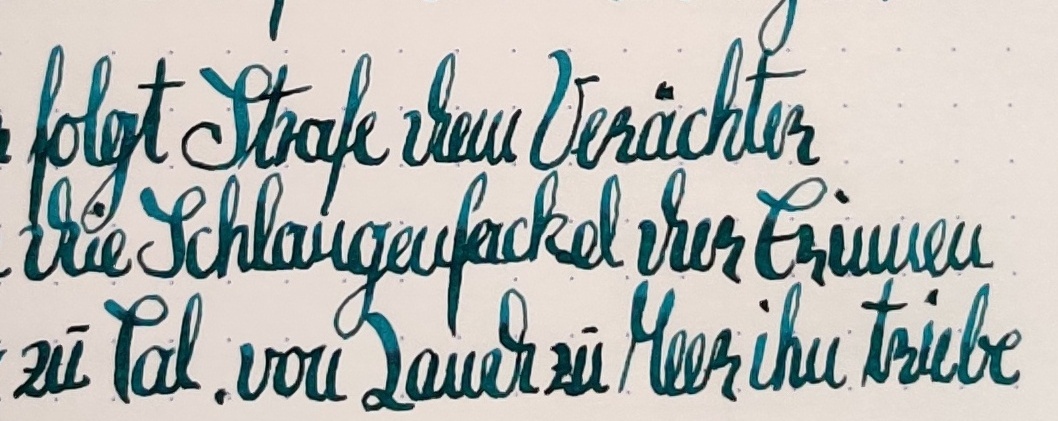 folgt Strafe dem Verächter
die Schlangenfackel der Erinnen
zū Tal, von Land zū Meer ihn triebe